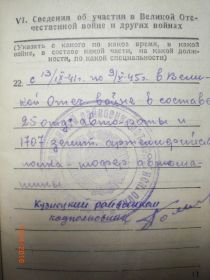 VI. Сведения об участии в Великой Оте-
чественной войне и других войнах
(Указать с какого по какое время, в какой
войне, в составе какой части, на какой долж-
ности, по какой специальности)
22. с 13/IX-41г. по 9/V-45г. в Вели-
кой Отеч. война в составе
25 отд. автороты и
1707 зенит. артиллерийск
полка - шофер автома-
шины
Кузнецкий райвоенком
подполковник
11